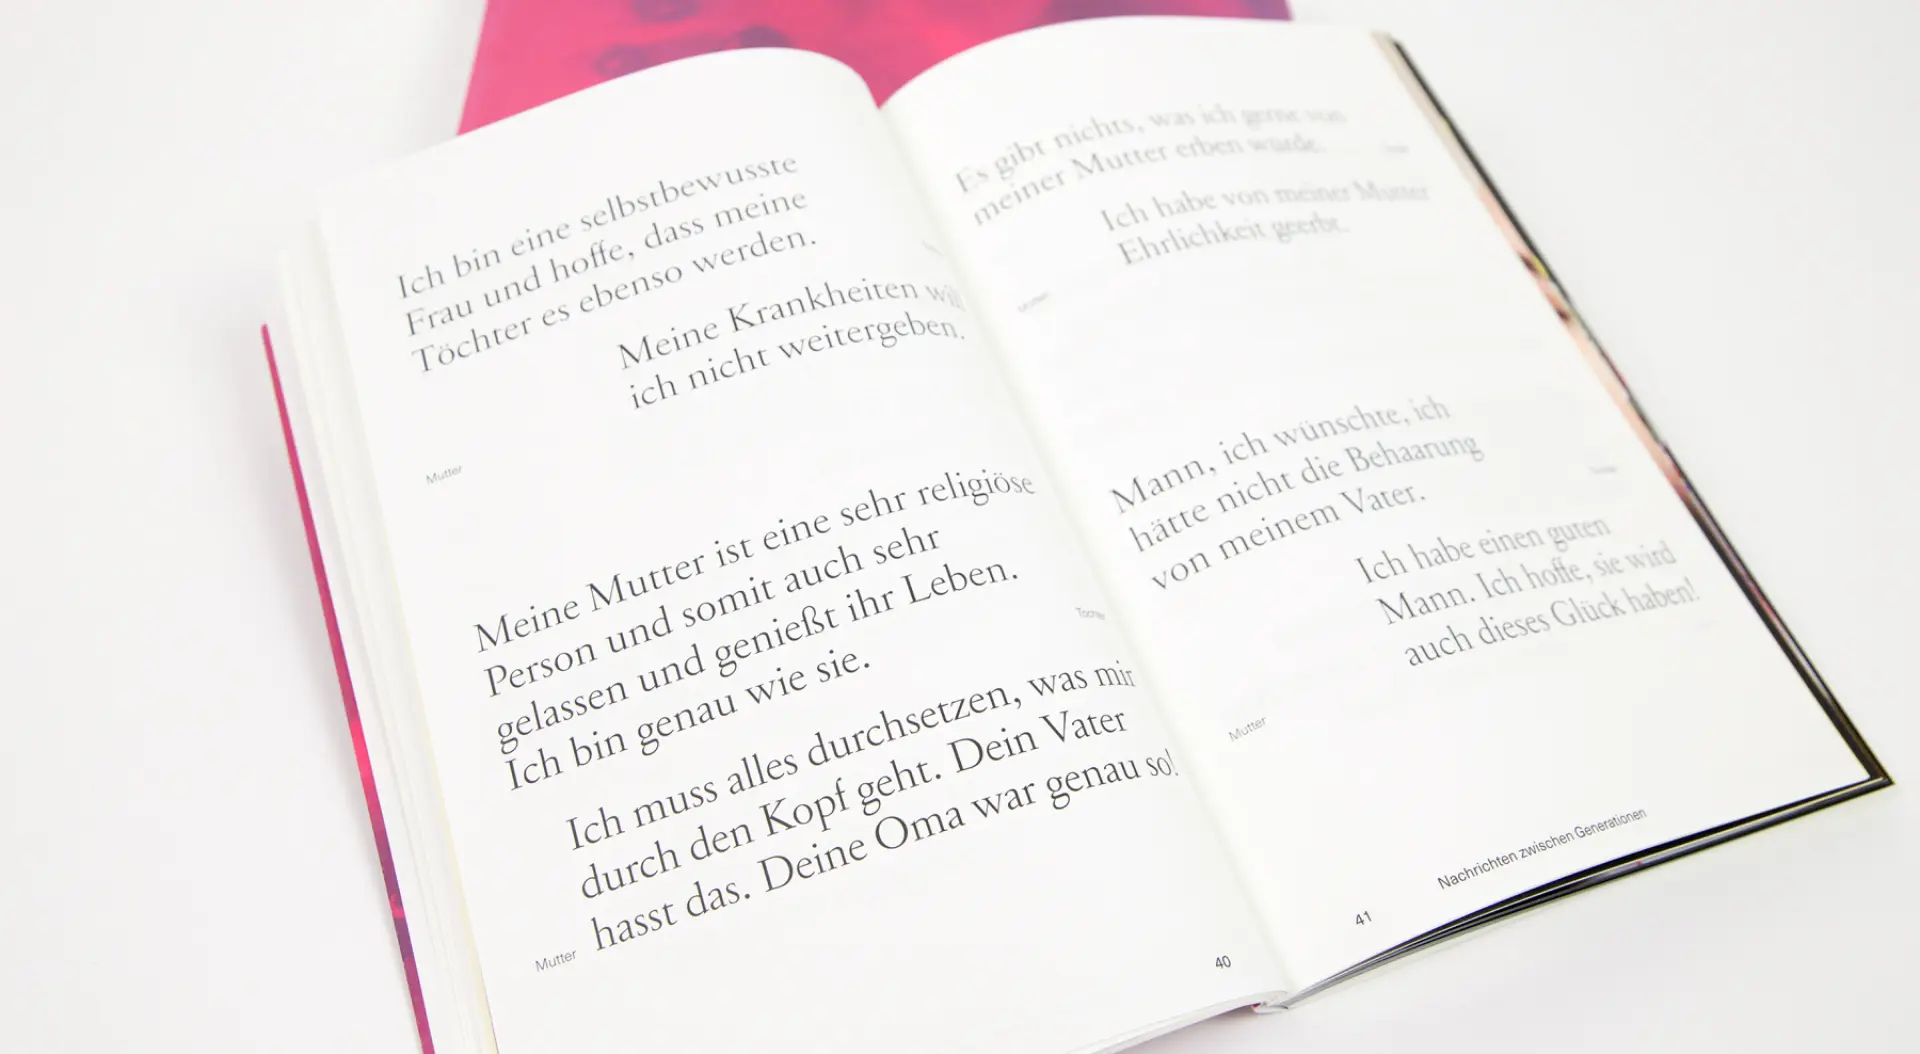 Ich bin eine selbstbewusste
Frau und hoffe, dass meine
Töchter es ebenso werden.
Meine Krankheiten will
ich nicht weitergeben.
Mutter
Meine Mutter ist eine sehr religiöse
Person und somit auch sehr
gelassen und genießt ihr Leben.
Ich bin genau wie sie.
Tochter
Ich muss alles durchsetzen, was mir
durch den Kopf geht. Dein Vater
hasst das. Deine Oma war genau so!
Mutter
40
Es gibt nichts, was ich gerne von
meiner Mutter erben würde.
Ich habe von meiner Mutter
Ehrlichkeit geerbt.
Mutter
Mann, ich wünschte, ich
hätte nicht die Behaarung
von meinem Vater.
Ich habe einen guten
Mann. Ich hoffe, sie wird
auch dieses Glück haben!
Mutter
41
Nachrichten zwischen Generationen